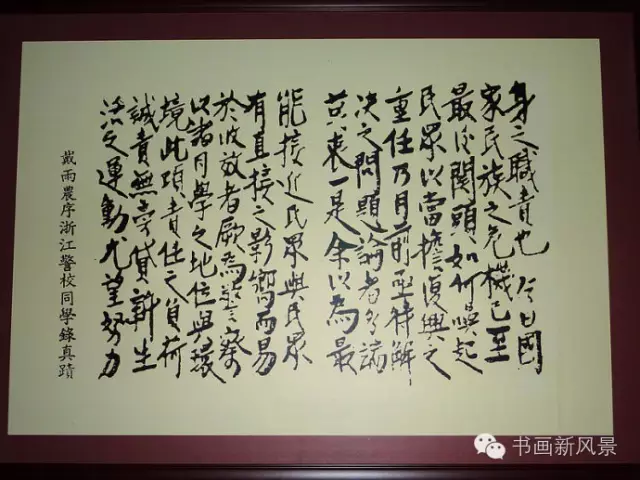 身之職責也今日國
家民族之危機已至
最後關頭如何喚起
民眾以當擔復興之
重任乃目前亟待解
決之問題論者多端
莫衷一是余以為最
能接近民眾與民眾
有直接之影響而易
於收效者厥為警察
以諸同學之地位與環
境此項責任之負荷
誠責無旁貸新生
活之運動尤望努力
戴雨農序浙江警校同學錄真蹟
书画新风景